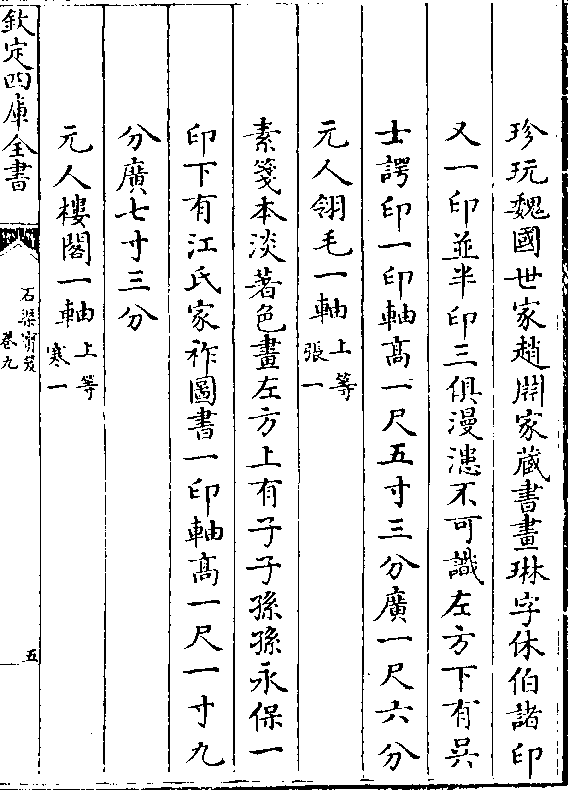 珍玩魏國世家趙閧家藏書畫琳字休伯諸印
又一印並半印三俱漫漶不可識左方下有吳
士諤印一印軸髙一尺五寸三分廣一尺六分
元人翎毛一軸上等張一
素箋本淡著色畫左方上有子子孫孫永保一
印下有江氏家祚圖書一印軸髙一尺一寸九
分廣七寸三分
元人樓閣一軸上等寒一
欽定四庫全書
石渠寶笈
卷九
五